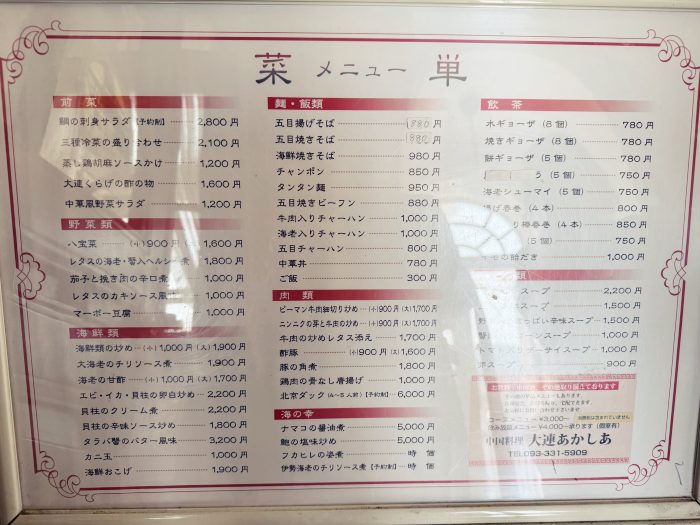 菜 メニュー 単
前菜
鯛の刺身サラダ【予約制】 2,800円
三種冷菜の盛り合わせ 2,100円
蒸し鶏胡麻ソースかけ 1,200円
大連くらげの酢の物 1,600円
中華風野菜サラダ 1,200円
野菜類
八宝菜 (小)900円 (大)1,600円
レタスの海老・蟹入ヘルシー煮 1,800円
茄子と挽き肉の辛口煮 1,000円
レタスのカキソース風 1,000円
マーボー豆腐 1,000円
海鮮類
海鮮類の炒め (小)1,000円 (大)1,900円
大海老のチリソース煮 1,900円
海老の甘酢 (小)1,000円 (大)1,700円
エビ・イカ・貝柱の卵白炒め 2,200円
貝柱のクリーム煮 2,200円
貝柱の辛味ソース炒め 1,800円
タラバ蟹のバター風味 3,200円
カニ玉 1,000円
海鮮おこげ 1,900円
麺・飯類
五目揚げそば 880円
五目焼きそば 880円
海鮮焼きそば 980円
チャンポン 850円
タンタン麺 950円
五目焼きビーフン 880円
牛肉入りチャーハン 1,000円
海老入りチャーハン 1,000円
五目チャーハン 800円
中華丼 780円
ご飯 300円
肉類
ピーマン牛肉細切り炒め (小)900円 (大)1,700円
ニンニクの芽と牛肉の炒め (小)900円 (大)1,700円
牛肉の炒めレタス添え 1,700円
酢豚 (小)900円 (大)1,600円
豚の角煮 1,800円
鶏肉の骨なし唐揚げ 1,000円
北京ダック(4〜5人前)【予約制】 6,000円
海の幸
ナマコの醤油煮 5,000円
鮑の塩味炒め 5,000円
フカヒレの姿煮 時価
伊勢海老のチリソース煮【予約制】 時価
飲茶
水ギョーザ (8個) 780円
焼きギョーザ (8個) 780円
餅ギョーザ (5個) 780円
う (5個) 750円
海老シューマイ (5個) 750円
揚げ春巻 (4本) 800円
り棒春巻 (4本) 850円
(5個) 750円
の飴だき 1,000円
スープ 2,200円
スープ 1,500円
っぱい辛味スープ 1,500円
ーンスープ 1,000円
サイスープ 1,000円
スープ 900円
コース ¥3,000〜
飲み放題メニュー ¥4,000〜承ります(個室有)
中国料理 大連あかしあ
TEL093-331-5909